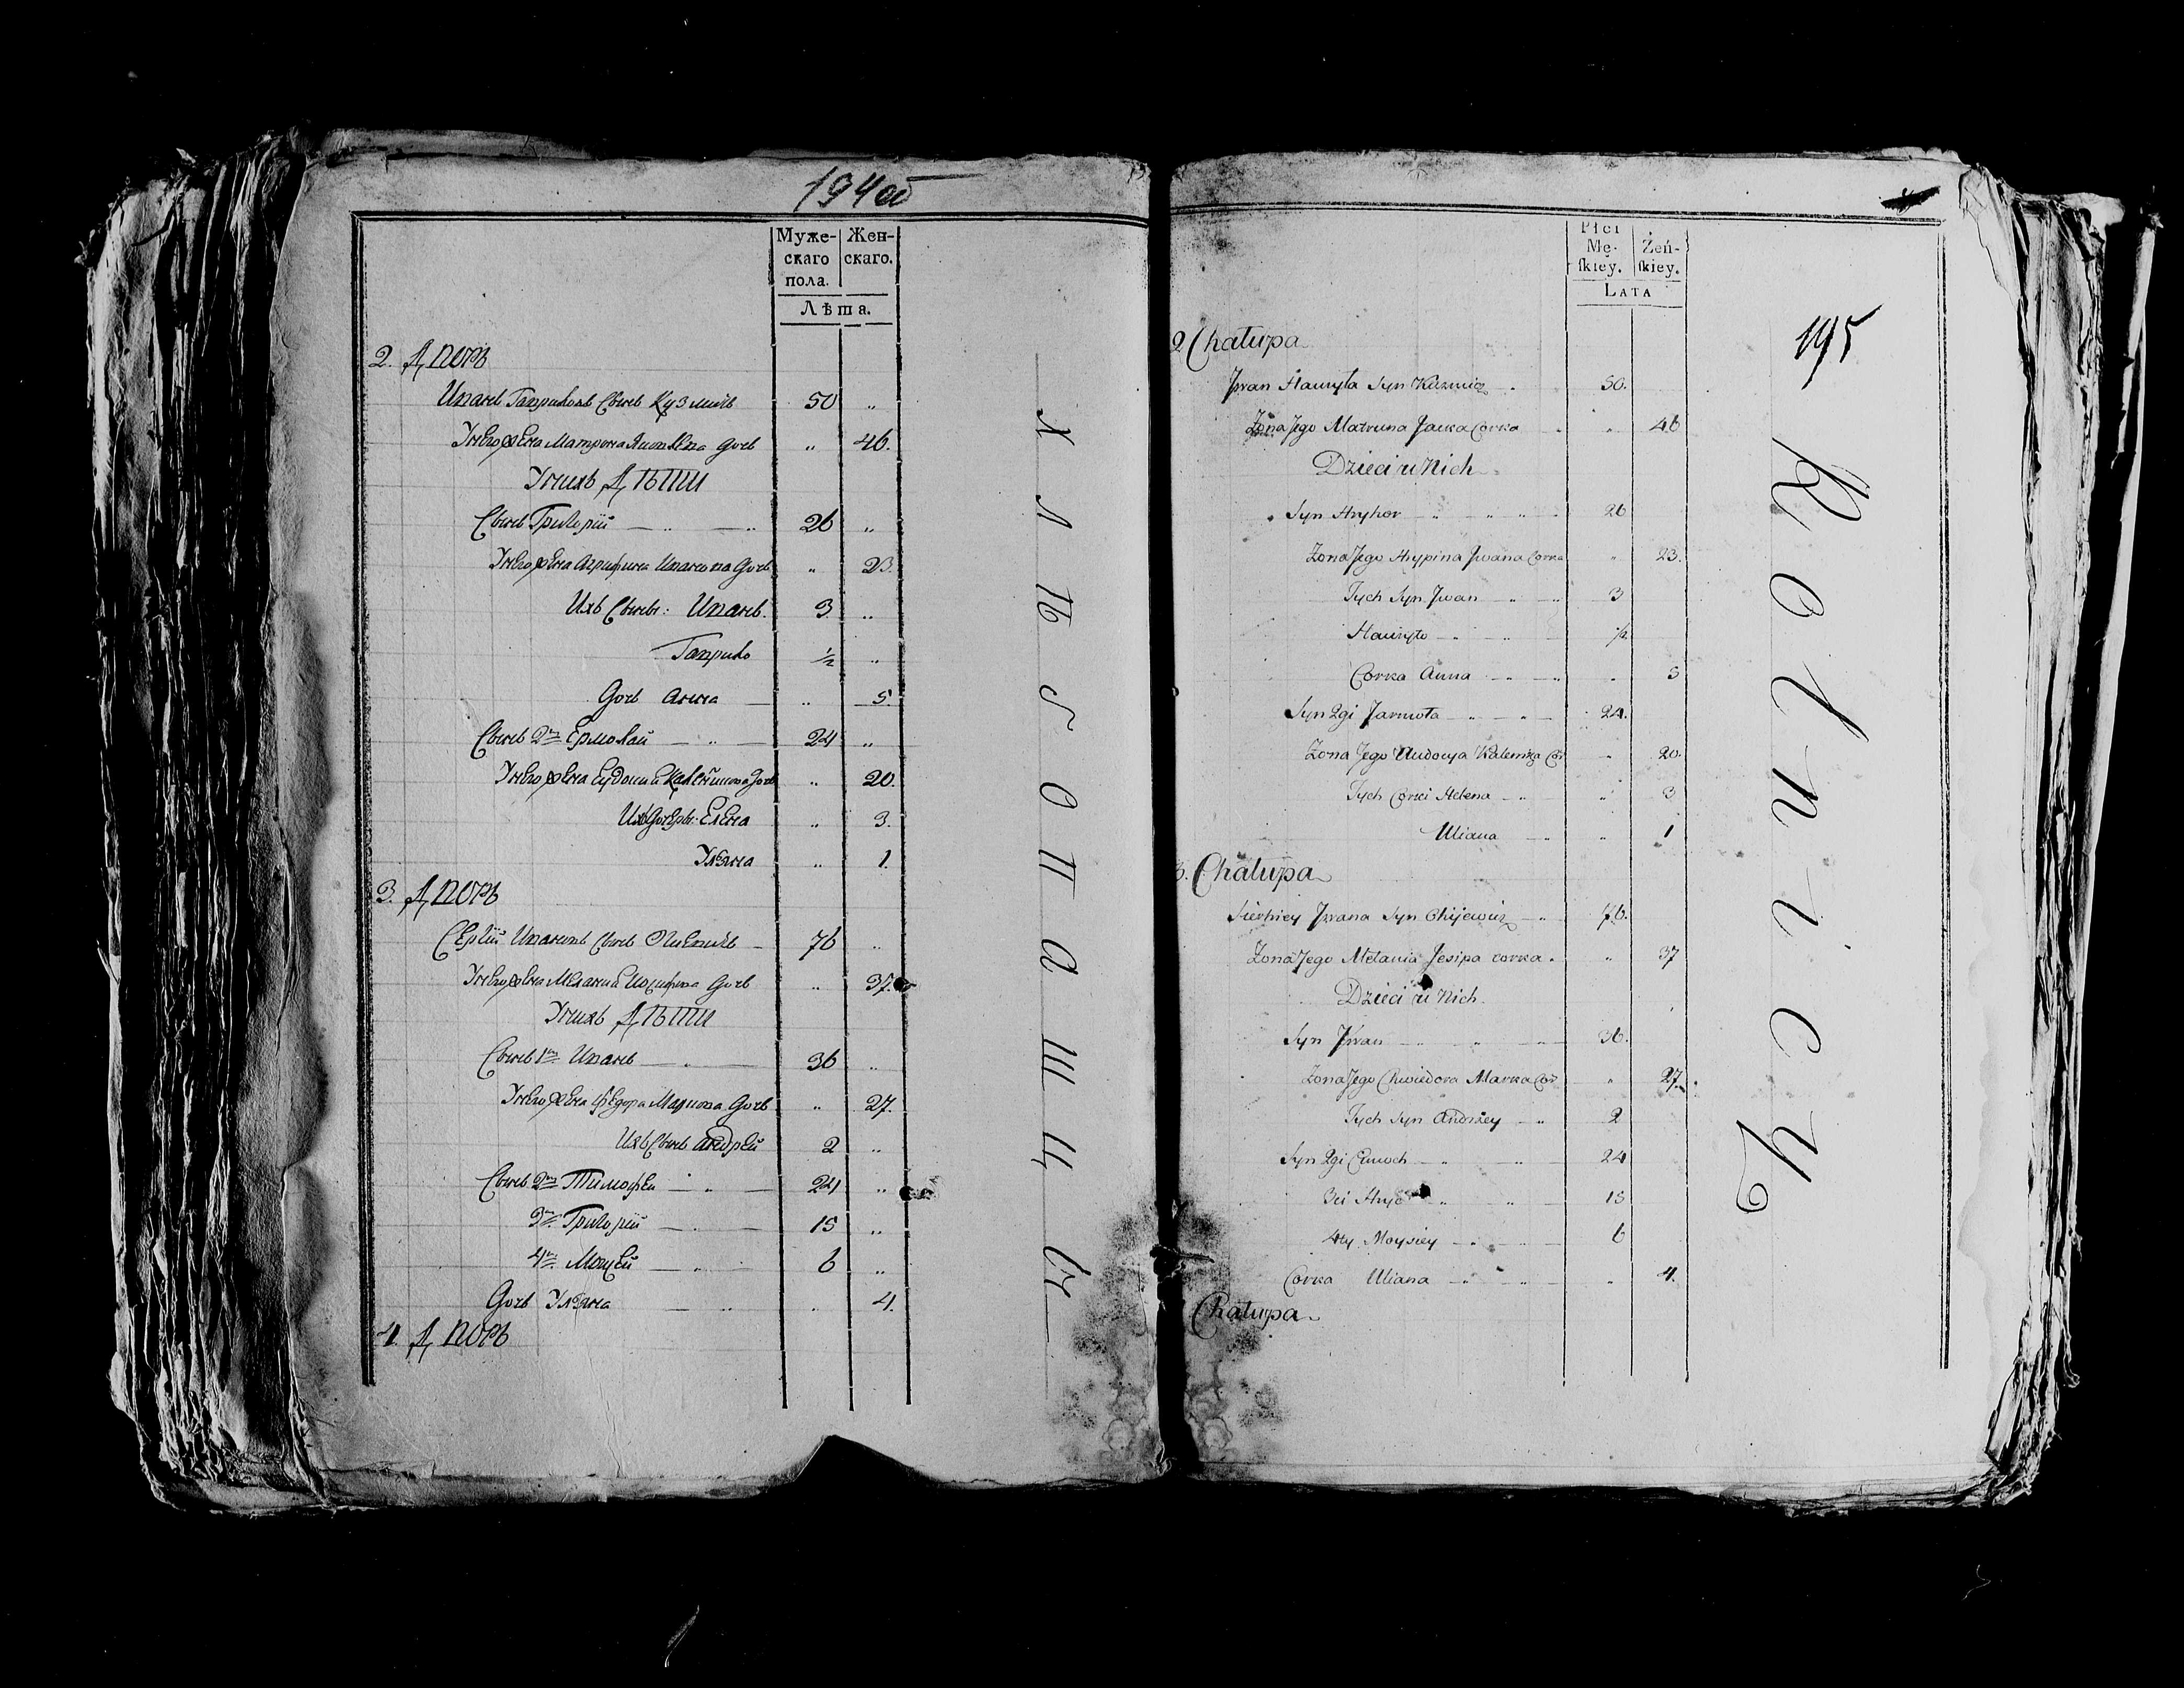 194об
Муже- Жен-
скаго скаго.
пола.
Лѣта.
2. Дворъ
Иванъ Гавриловъ Сынъ Кузмичъ 50 „
У него жена Матрона Яковлева дочь „ 46.
У нихъ Дѣти
Сынъ Григорій — „ — „ 26 „
У него жена Агрифина Иванова дочь „ 23.
Ихъ Сыны: Иванъ. 3. „
Гаврило ½ „
Дочь Анна — „ 5.
Сынъ 2й Ермолай — „ — 24 „
У него жена Евдокия дочь „ 20.
Ихъ дочери: Елена „ 3.
Уляна „ 1.
3. Дворъ
Сергій Ивановъ Сынъ — 76 „
У него жена Мелания Иосифова дочь „ 37.
У нихъ Дѣти
Сынъ 1й Иванъ — „ — 36 „
У него жена Федора Маркова дочь „ 27.
Ихъ Сынъ Андрей 2 „
Сынъ 2й Тимофей — „ — 24 „
3й Григорій — „ — 15 „
4й Мойсей — „ — 6 „
Дочь Уляна — „ „ 4.
4. Дворъ
Хлѣбопашцы
195
Płci
Mę- Żeń-
ſkiey. ſkiey.
LATA
2 Chałupa
Jwan Hawryła Syn Kuzmicz „ 50.
Żona Jego Matruna Jaćka Corka „ 46
Dzieci u Nich
Syn Hryhor — „ „ „ 26
Żona Jego Hrypina Jwana Corka „ 23.
Tych Syn Jwan — „ — „ 3
Hawryło — „ — „ ½
Corka Anna — „ — „ „ 5
Syn 2gi Jarmoła — „ — „ 24.
Żona Jego Audocya Cor „ 20.
Tych Corki Helena — „ „ 3
Uliana — „ „ 1
3. Chałupa
Sierhiey Jwana Syn — „ 76.
Żona Jego Melania Jesipa corka. „ 37
Dzieci u Nich.
Syn Jwan — „ — „ 36.
Żona Jego Chwiedora Marka Cor „ 27.
Tych Syn Andrzey — „ 2
Syn 2gi — „ „ 24
3ci — „ „ 15
4ty Moysiey — „ — 6
Corka Uliana — „ „ „ 4.
Chałupa
Rolnicy